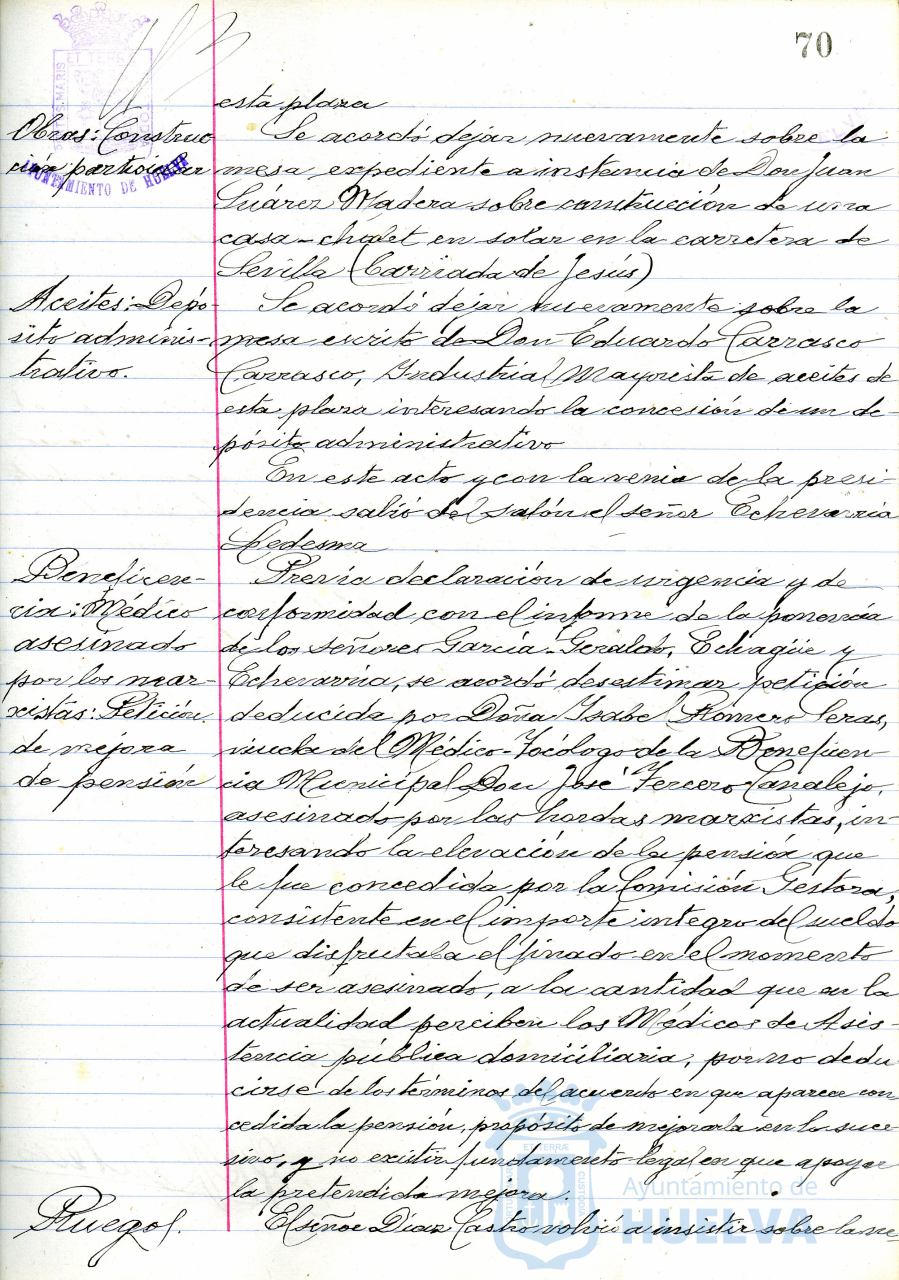 70
esta plaza
Obras: Construc-
ción particular
Se acordó dejar nuevamente sobre la
mesa, expediente a instancia de Don Juan
Suárez Madera sobre construcción de una
casa-chalet en solar en la carretera de
Sevilla (Barriada de Jesús)
Aceites: Depó-
sito adminis-
trativo.
Se acordó dejar nuevamente sobre la
mesa escrito de Don Eduardo Carrasco
Carrasco, Industrial Mayorista de aceites de
esta plaza interesando la concesión de un de-
pósito administrativo
En este acto y con la venia de la presi-
dencia salió del salón el señor Echevarria
Ledesma
Beneficen-
cia: Médico
asesinado
por los mar-
xistas: Petición
de mejora
de pensión
Previa declaración de urgencia y de
conformidad con el informe de la ponencia
de los señores García-Geraldo, Echagüe y
Echevarria, se acordó desestimar petición
deducida por Doña Isabel Romero Seras,
viuda del Médico-Tocólogo de la Beneficen-
cia Municipal Don José Tercero Canalejo,
asesinado por las hordas marxistas, in-
teresando la elevación de la pensión que
le fue concedida por la Comisión Gestora,
consistente en el importe integro del sueldo
que disfrutaba el finado en el momento
de ser asesinado, a la cantidad que en la
actualidad perciben los Médicos de Asis-
tencia pública domiciliaria, por no dedu
cirse de los términos del acuerdo en que aparece con-
cedida la pensión, propósito de mejorarla en lo suce-
sivo, y no existir fundamento legal en que apoyar
la pretendida mejora.
Ruegos.
El señor Díaz Castro volvió a insistir sobre la ne-
AYUNTAMIENTO DE HUELVA
Ayuntamiento de
HUELVA